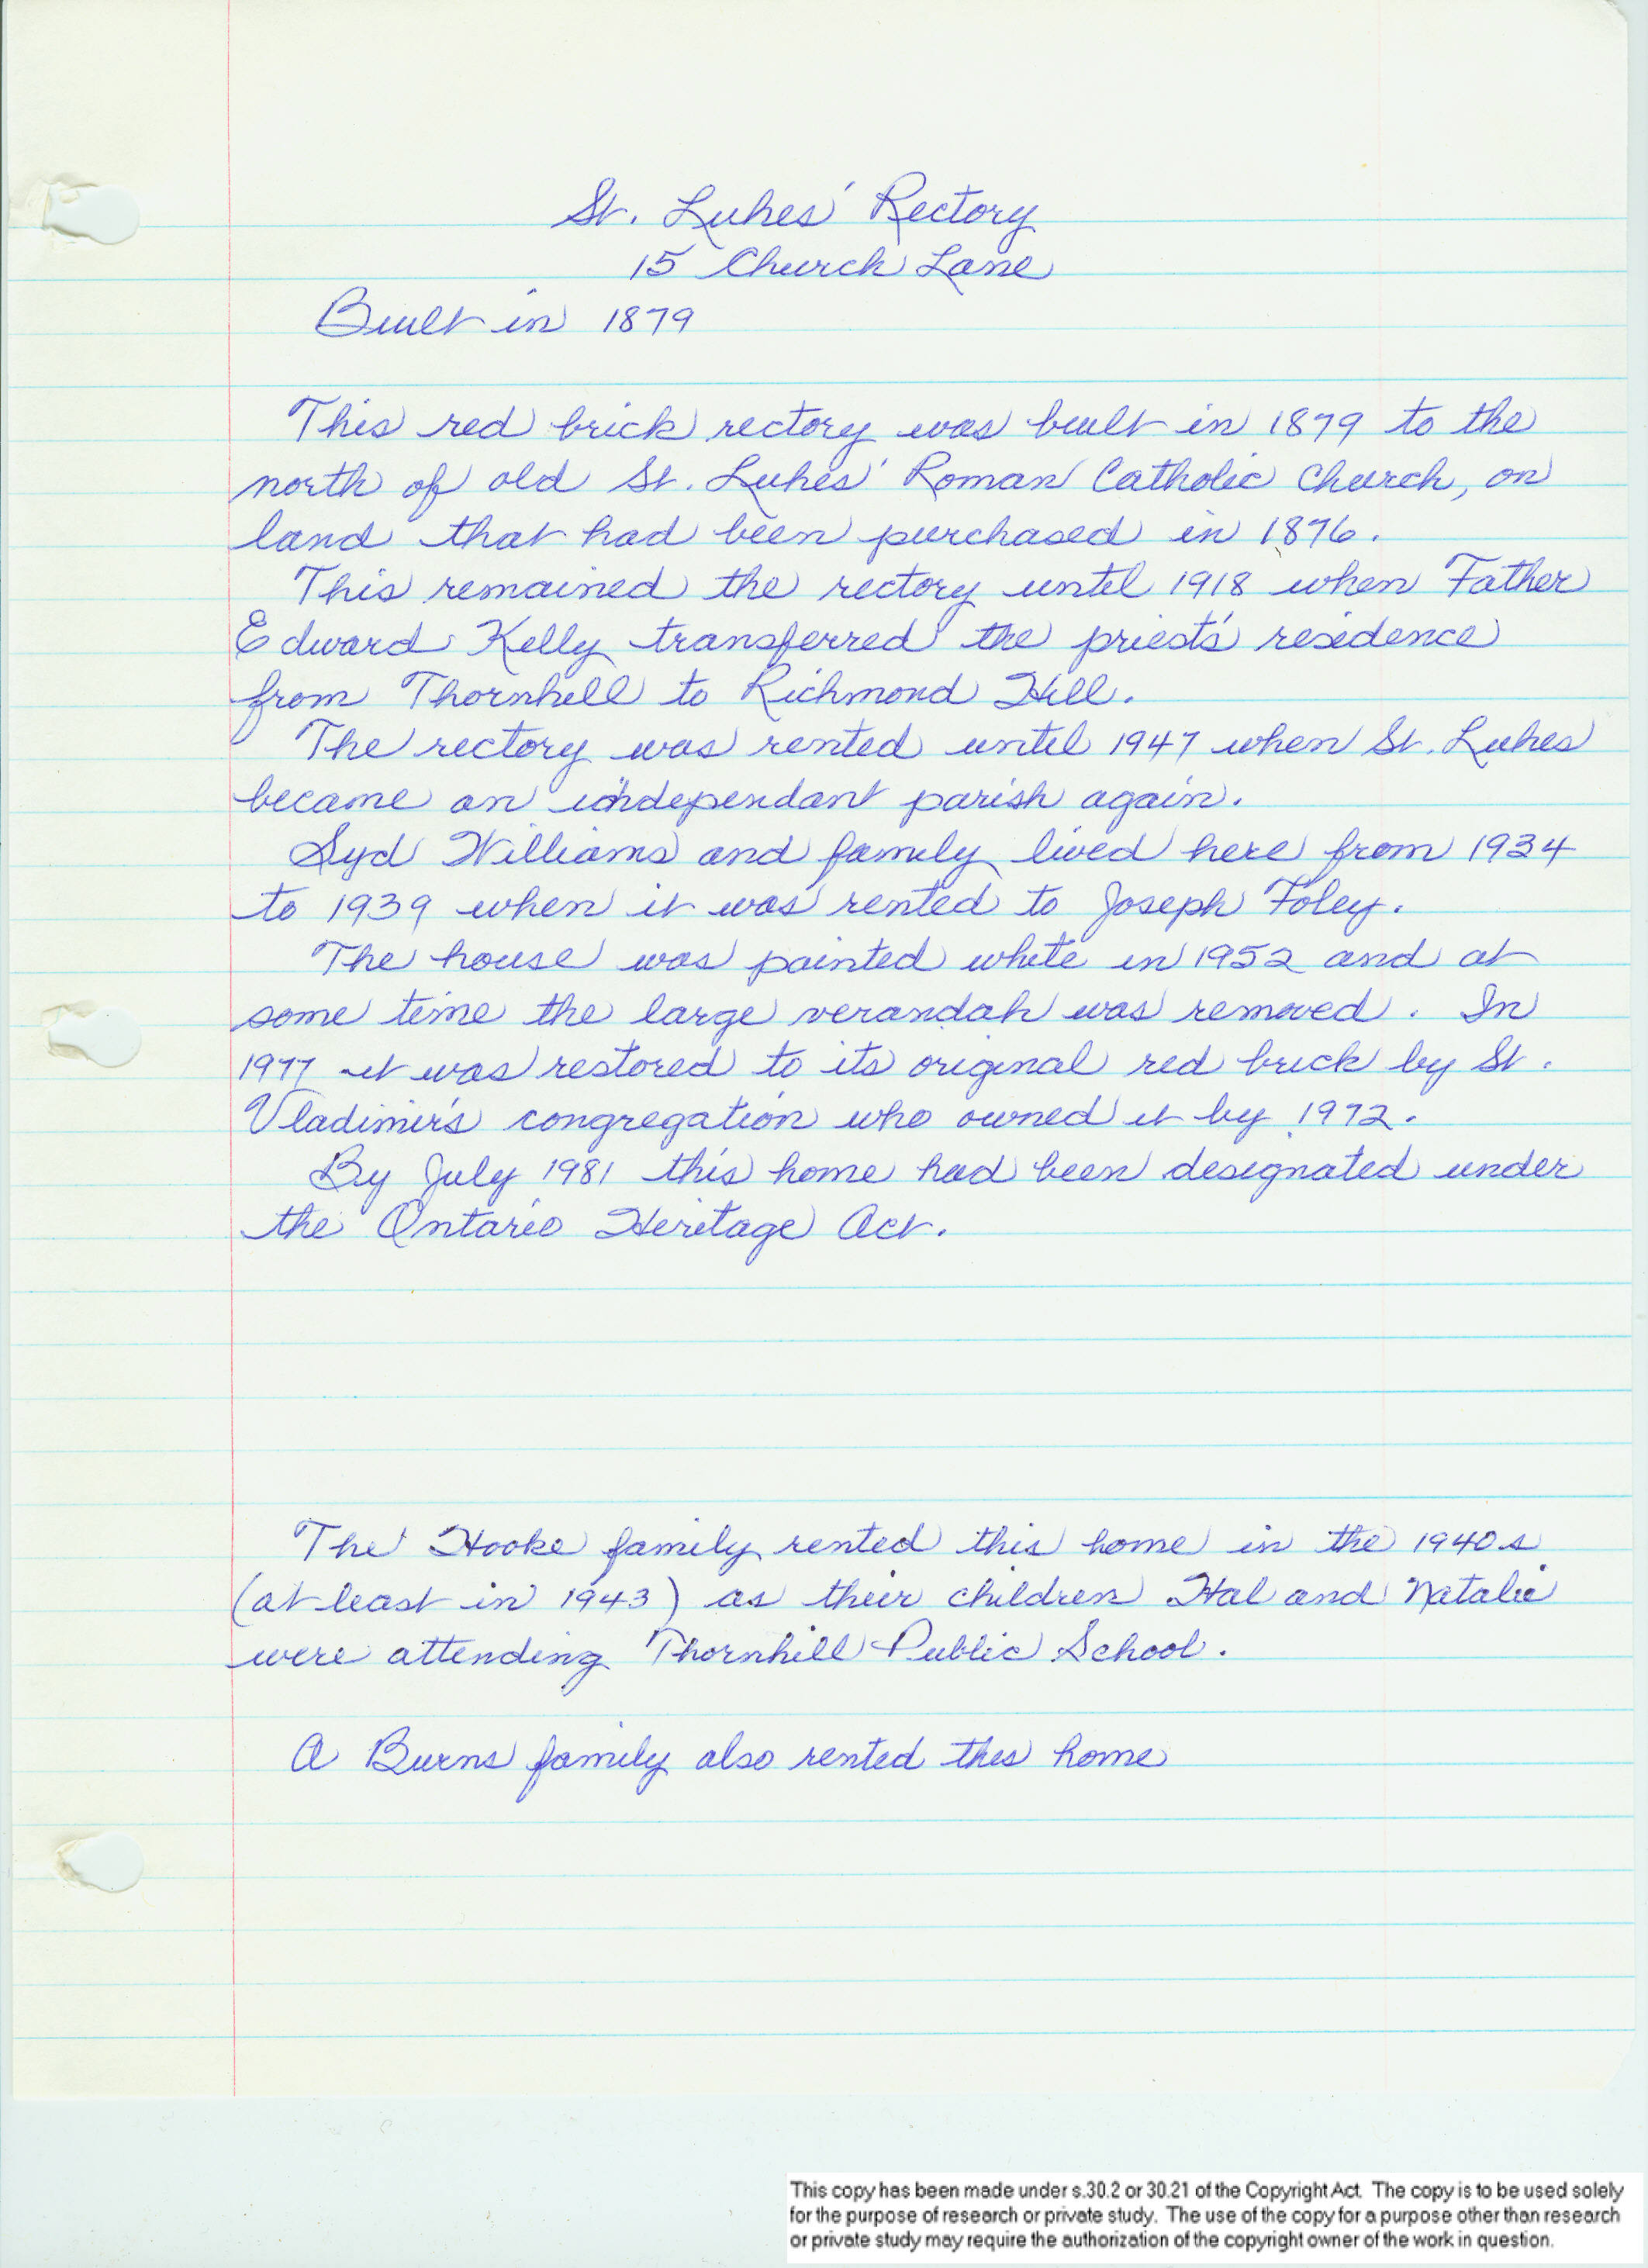 St. Lukes' Rectory
15 Church Lane
Built in 1879
This red brick rectory was built in 1879 to the
north of old St. Lukes' Roman Catholic Church, on
land that had been purchased in 1876.
This remained the rectory until 1918 when Father
Edward Kelly transferred the priest's residence
from Thornhill to Richmond Hill.
The rectory was rented until 1947 when St. Lukes
became an independant parish again.
Syd Williams and family lived here from 1934
to 1939 when it was rented to Joseph Foley.
The house was painted white in 1952 and at
some time the large verandah was removed. In
1977 it was restored to its original red brick by St.
Vladimir's congregation who owned it by 1972.
By July 1981 this home had been designated under
the Ontario Heritage Act.
The Hooke family rented this home in the 1940s
(at least in 1943) as their children Hal and Natalie
were attending Thornhill Public School.
A Burns family also rented this home
This copy has been made under s.30.2 or 30.21 of the Copyright Act. The copy is to be used solely
for the purpose of research or private study. The use of the copy for a purpose other than research
or private study may require the authorization of the copyright owner of the work in question.